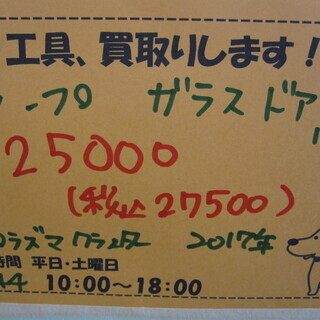 工具、買取りします!
ープ ガラスドア
25000
(税込27500)
プラズマクラスター 2017年
時間 平日・土曜日
14 10:00～18:00